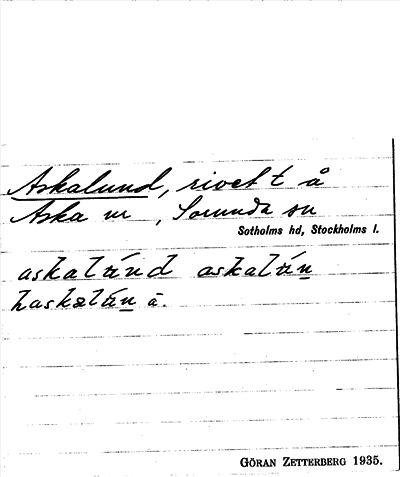 Askalund, rivet t å
Aska nr , Sorunda sn
Sotholms hd, Stockholms l.
askalúnd askalún
haskalún ä.
GÖRAN ZETTERBERG 1935.